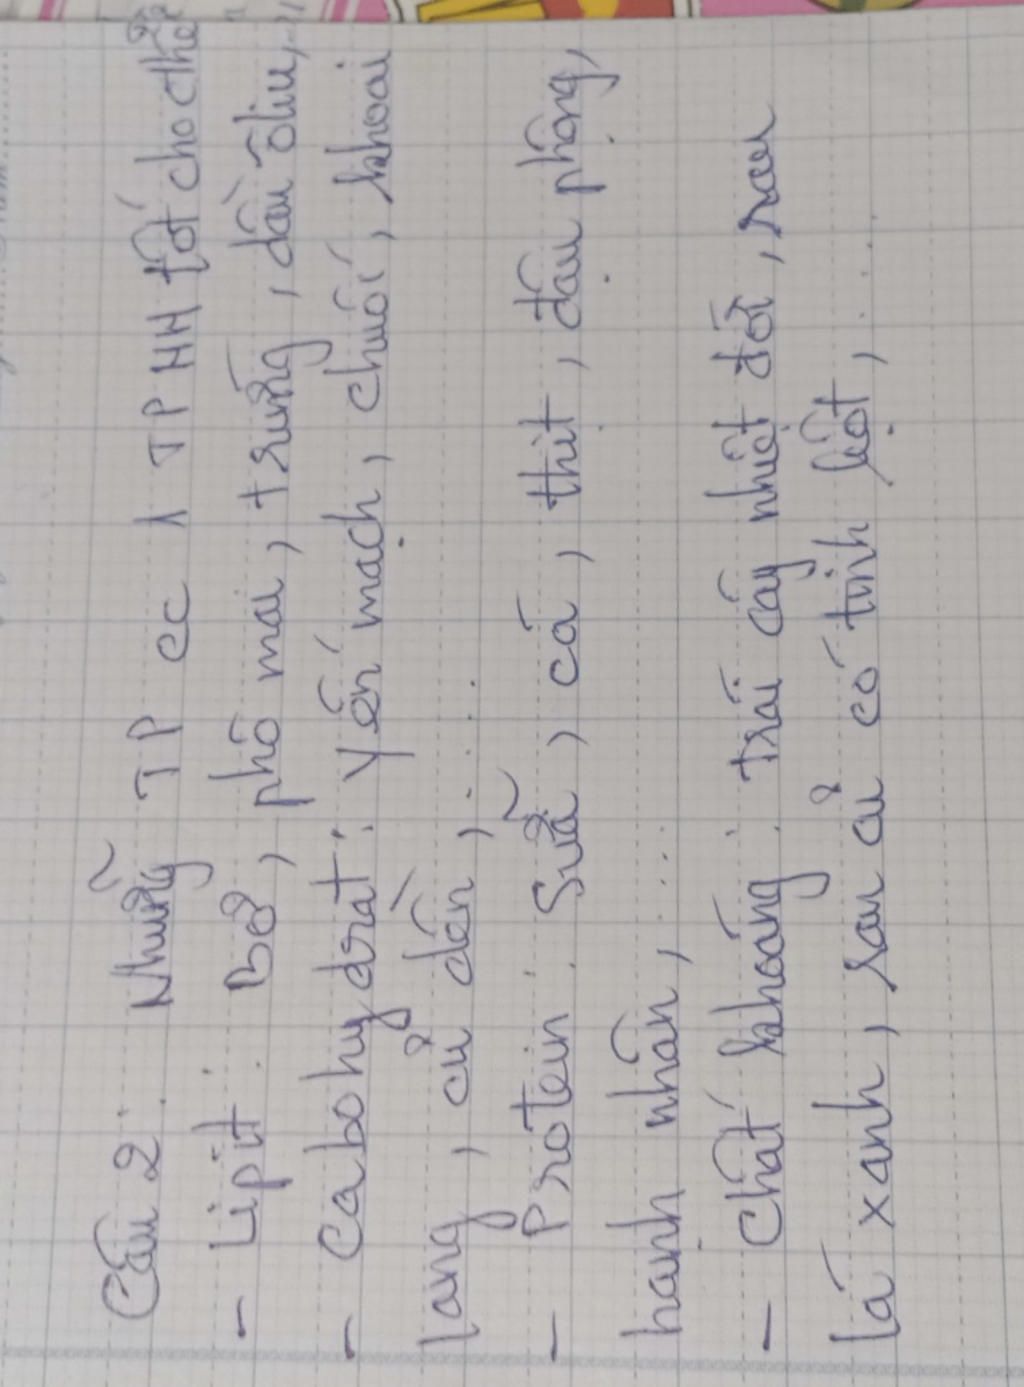 Câu 2: Những TP cc 1 TP HH tốt cho cthể
- Lipit: Bơ, phô mai, trứng, dầu ôliu,...
- Cabohyđrat: Yến mạch, chuối, khoai
lang, củ dền,....
- Protein: Sữa, cá, thịt, đậu phộng,
hạnh nhân,...
- Chất khoáng: trái cây nhiệt đới, rau
lá xanh, rau củ có tinh bột,...